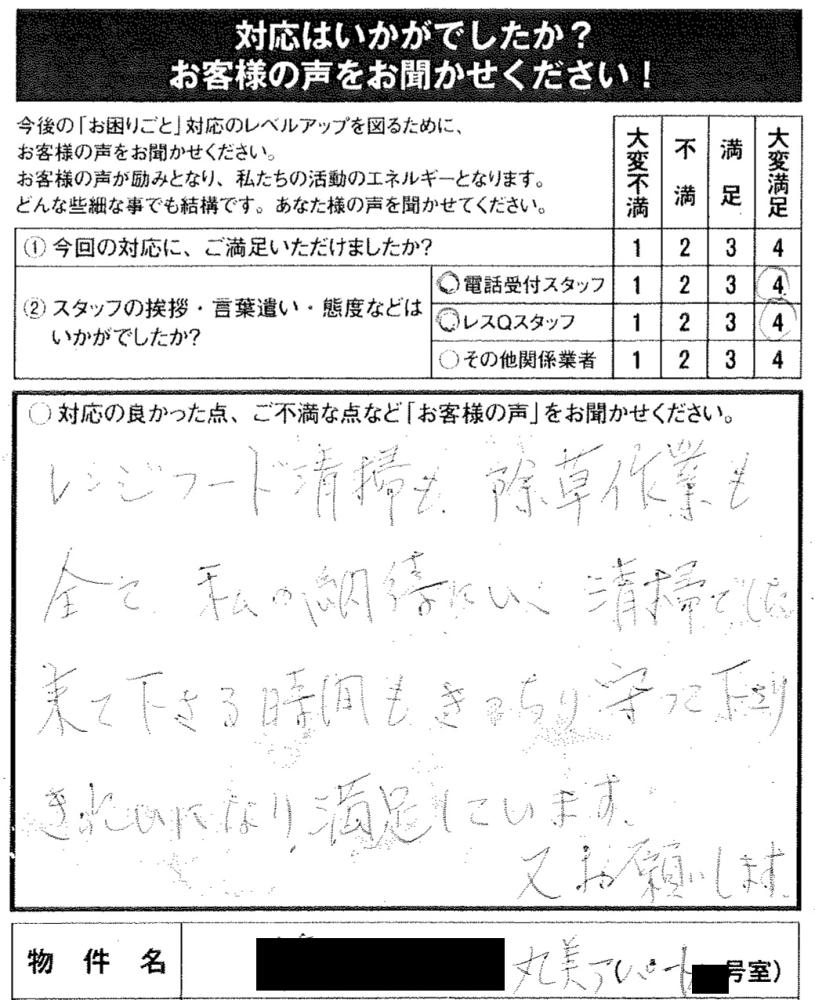 対応はいかがでしたか?
お客様の声をお聞かせください!
今後の「お困りごと」対応のレベルアップを図るために、
お客様の声をお聞かせください。
お客様の声が励みとなり、私たちの活動のエネルギーとなります。
どんな些細な事でも結構です。あなた様の声を聞かせてください。
大変不満 不満 満足 大変満足
① 今回の対応に、ご満足いただけましたか? 1 2 3 4
② スタッフの挨拶・言葉遣い・態度などは
いかがでしたか?
○電話受付スタッフ 1 2 3 4
○レスQスタッフ 1 2 3 4
○その他関係業者 1 2 3 4
○ 対応の良かった点、ご不満な点など「お客様の声」をお聞かせください。
レンジフード清掃も 除草作業も
全て 私の納得にいく 清掃でした
来て下さる時間もきっちり守って下さり
きれいになり満足しています。
又お願いします。
物件名 丸美アパート 号室)